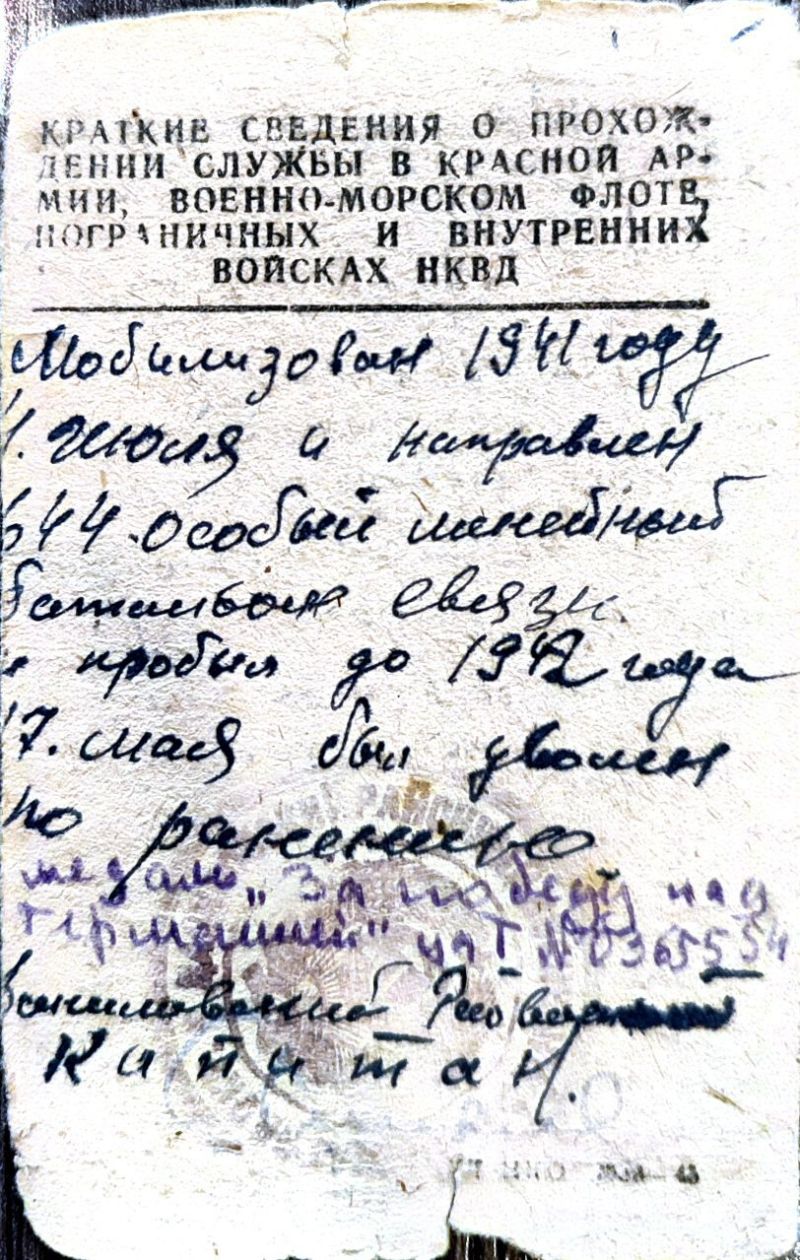 КРАТКИЕ СВЕДЕНИЯ О ПРОХОЖ-
ДЕНИИ СЛУЖБЫ В КРАСНОЙ АР-
МИИ, ВОЕННО-МОРСКОМ ФЛОТЕ,
ПОГРАНИЧНЫХ И ВНУТРЕННИХ
ВОЙСКАХ НКВД
Мобилизован 1941 году
1. Июля и направлен
644 особый линейный
батальон связи
и пробыл до 1942 года
17. мая был уволен
по ранению
медаль „За победу над
Германией" №0365554
Капитан